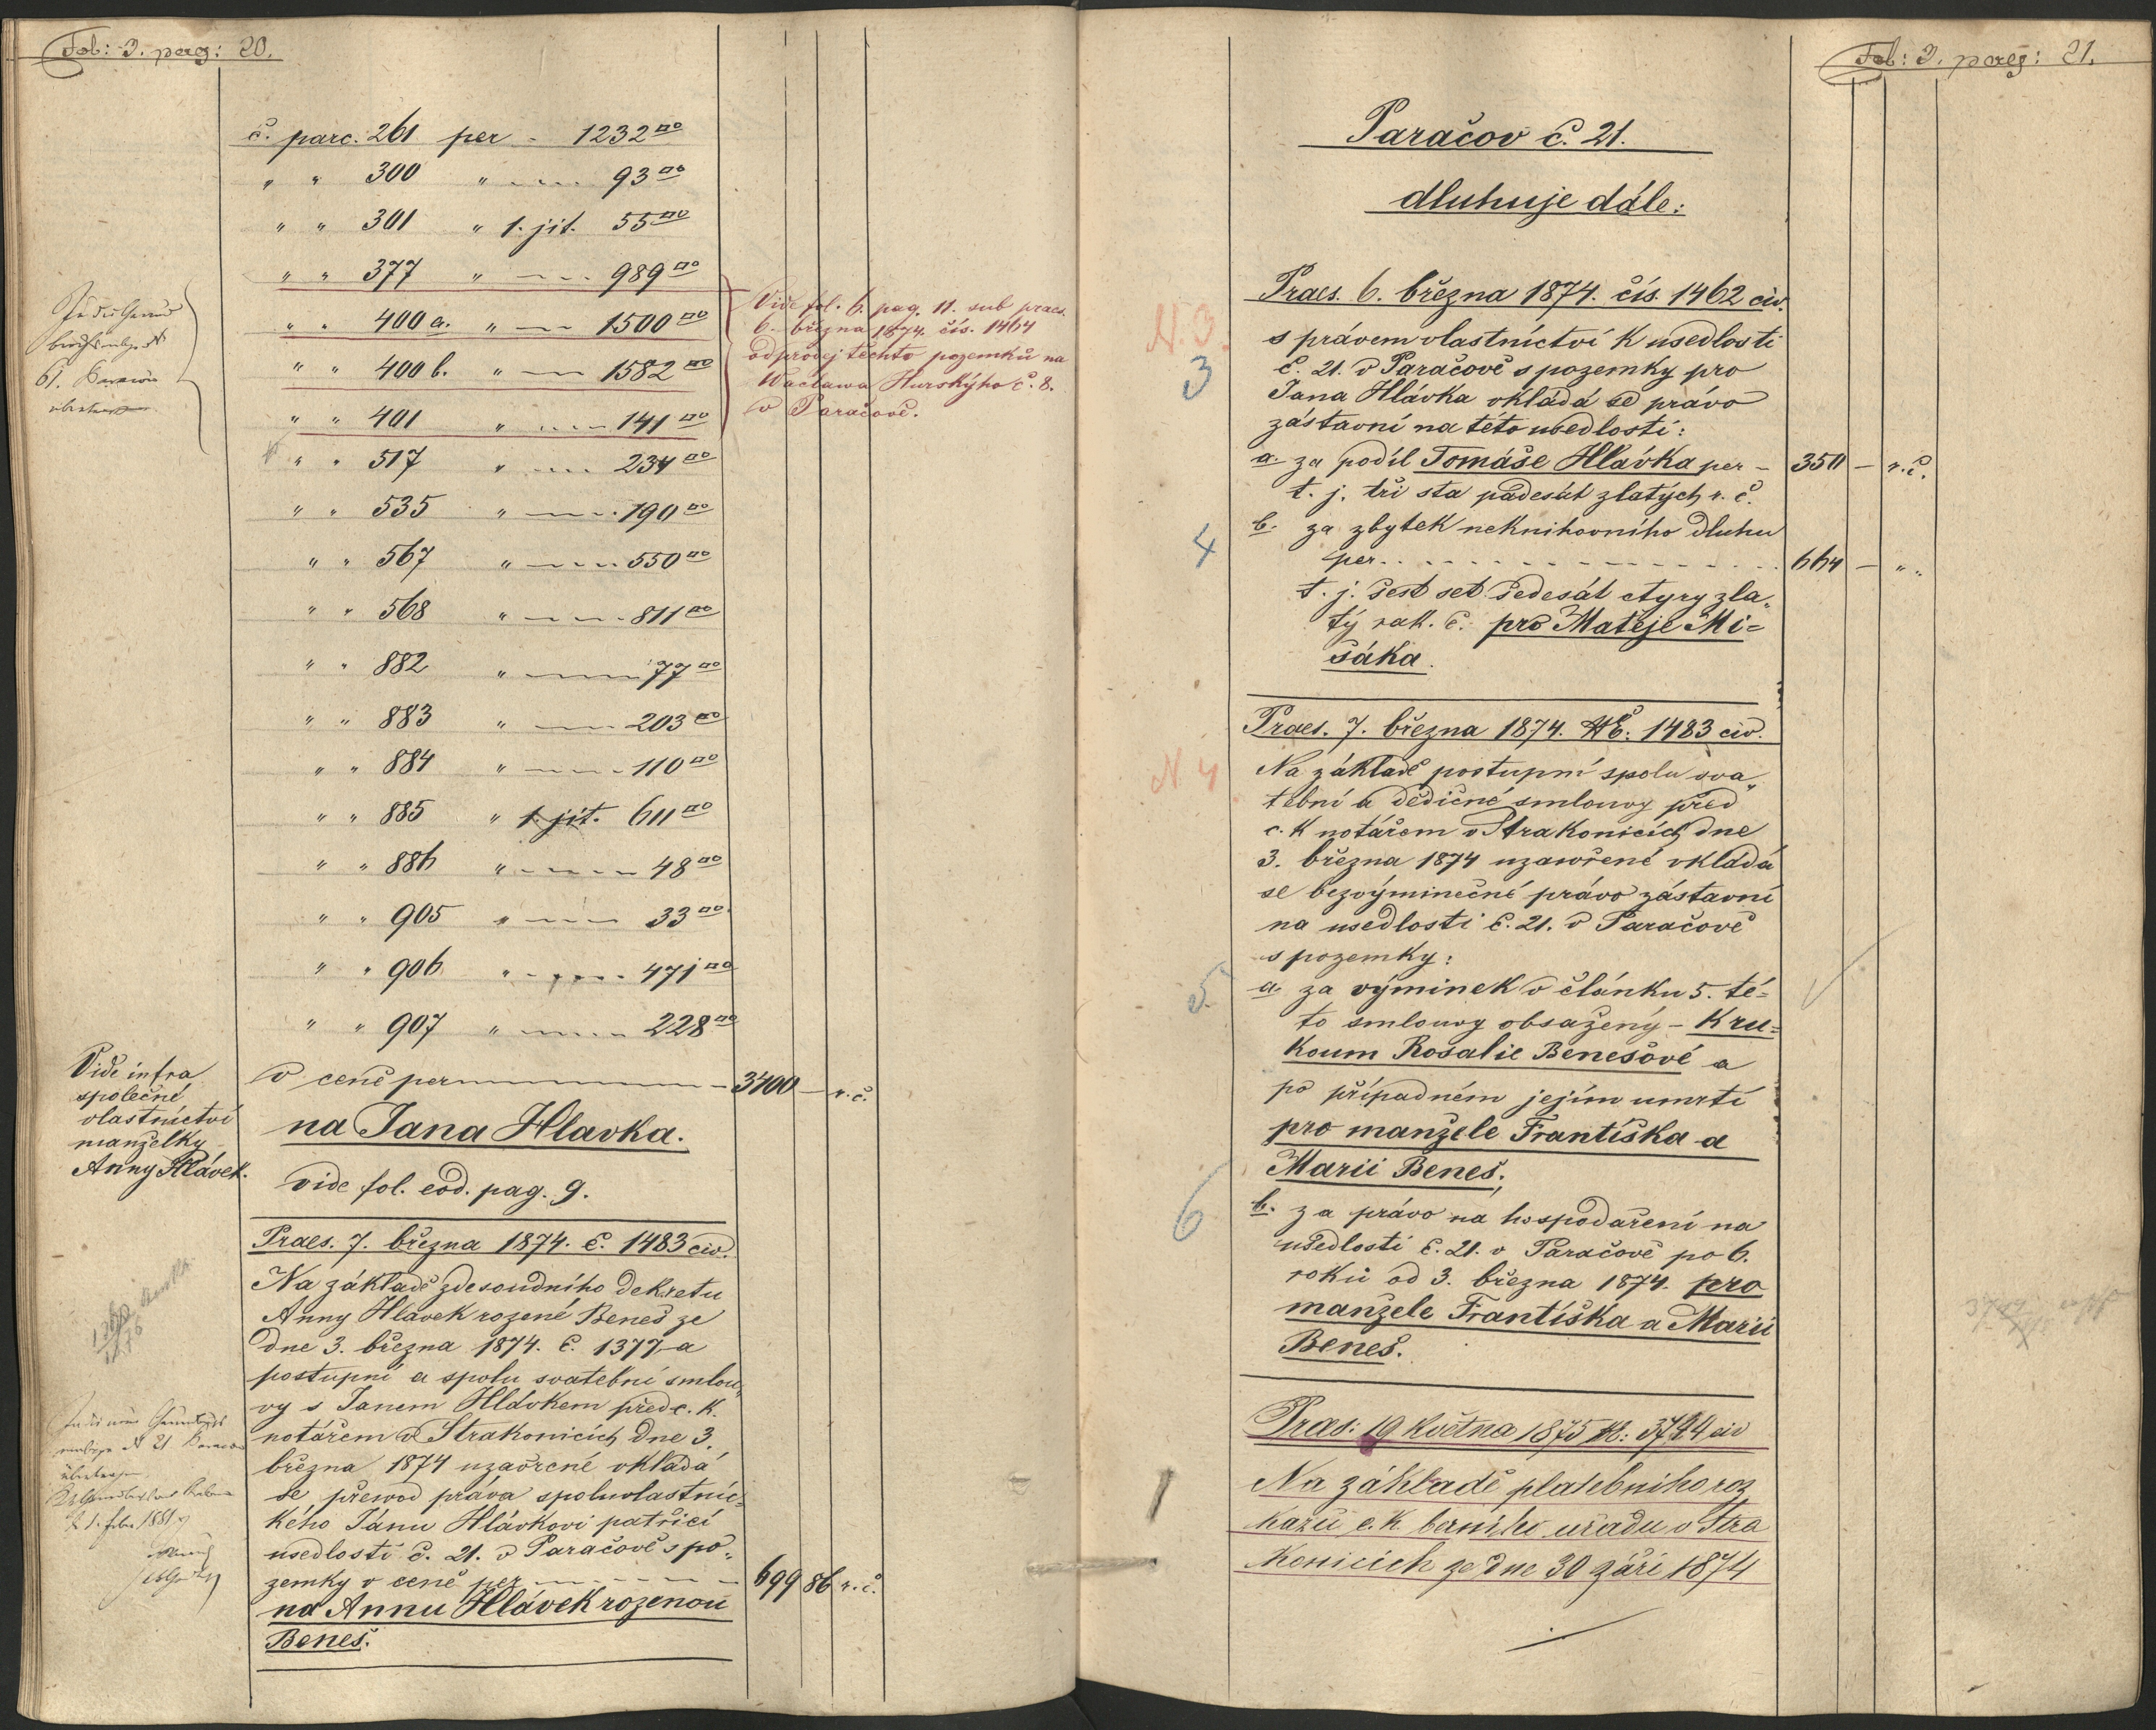 Fol: 3. pag: 20.
č. parc. 261 per - 1232□°
" " 300 " - - - 93□°
" " 301 " 1. jit. 55□°
" " 377 " - - - 989□°
" " 400 a. " - - 1500□°
" " 400 b. " - - 1582□°
" " 401 " - - - 141□°
" " 517 " - - - 234□°
" " 535 " - - - 190□°
" " 567 " - - - 550□°
" " 568 " - - - 811□°
" " 882 " - - - 77□°
" " 883 " - - - 203□°
" " 884 " - - - 110□°
" " 885 " 1. jit. 611□°
" " 886 " - - - 48□°
" " 905 " - - - 33□°
" " 906 " - - - 471□°
" " 907 " - - - 228□°
v ceně per - - - 3400 - r. č.
na Jana Hlavka.
vide fol. eod. pag. 9.
Vide fol. 6. pag. 11. sub praes.
6. března 1874. čís. 1464
odprodej těchto pozemků na
Waclawa Hurskýho č. 8.
v Paračově.
61.
Vide infra
společné
vlastnictví
manželky
Anny Hlávek.
Praes. 7. března 1874. č. 1483 civ.
Na základě zdesoudního dekretu
Anny Hlávek rozené Beneš ze
dne 3. března 1874. č. 1377 a
postupní a spolu svatební smlou„
vy s Janem Hlávkem před c. k.
notářem v Strakonicích dne 3.
března 1874 uzavřené vkládá
se převod práva spoluvlastnic=
kého Jánu Hlávkovi patřící
usedlosti č. 21. v Paračově s po„
zemky v ceně per - - - 699 86 r. č.
na Annu Hlávek rozenou
Beneš.
Fol: 3. pag: 21.
Paračov č. 21.
dluhuje dále:
Praes. 6. března 1874. čís. 1462 civ.
N. 3.
3
s právem vlastnictví k usedlosti
č. 21. v Paračově s pozemky pro
Jana Hlávka vkládá se právo
zástavní na této usedlosti:
a. za podíl Tomáše Hlávka per - 350 - r. č.
t. j. tři sta padesát zlatých r. č.
4
b. za zbytek neknihovního dluhu
per - - - 664 - " "
t. j. šest set šedesát čtyry zla„
tý rak. č. pro Matěje Mi=
šáka.
Praes. 7. března 1874. č. 1483 civ.
N. 4.
Na základě postupní spolu sva„
tební a dědičné smlouvy před
c. k notářem v Strakonicích dne
3. března 1874 uzawřené vkládá
se bezvýminečné právo zástavní
na usedlosti č. 21. v Paračově
s pozemky:
5.
a. za výminek v článku 5. té=
to smlouvy obsažený - k ru=
koum Rosalie Benešové a
po případném jejím umrtí
pro manžele Františka a
Marii Beneš;
6
b. za právo na hospodaření na
usedlosti č. 21. v Paračově po 6.
roků od 3. března 1874. pro
manžele Františka a Marii
Beneš.
Praes: 19 května 1875 č: 3744 civ
Na základě platebního roz
kazu c. k. berního uřadu v Stra
konicích ze dne 30 září 1874